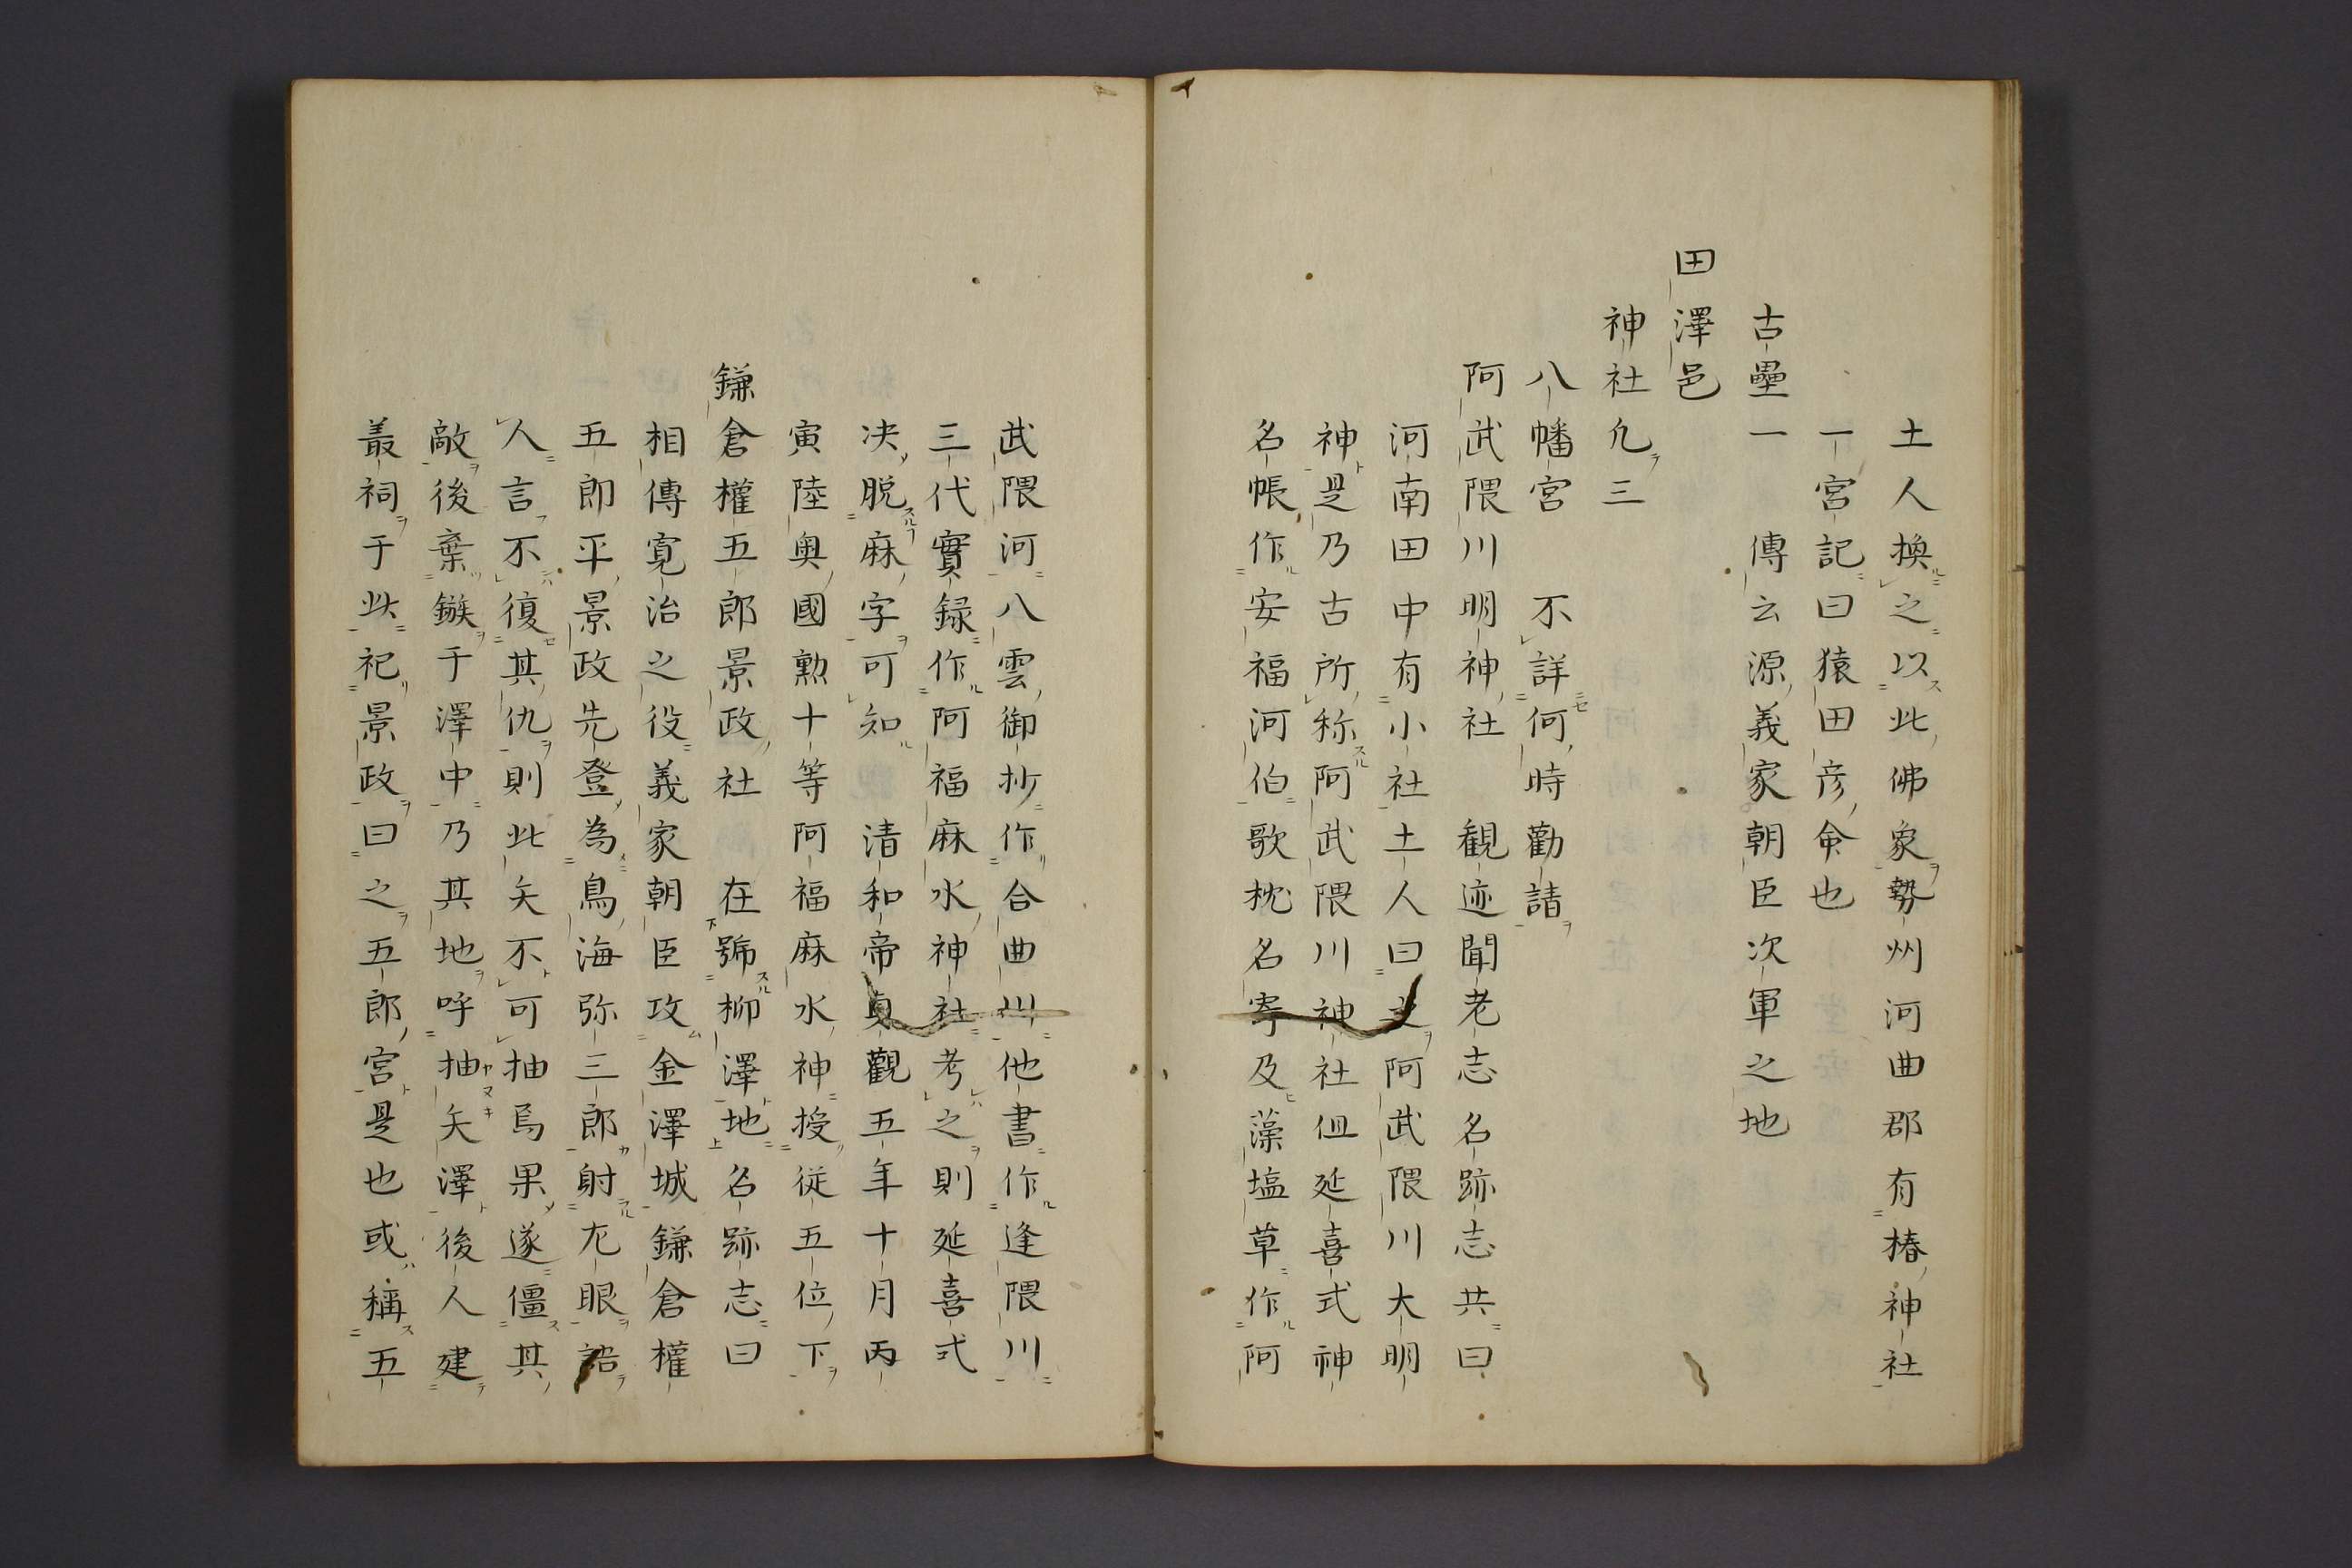 土人換之以此佛象勢州河曲郡有椿神社
一宮記曰猿田彦命也
古壘一　傳云源義家朝臣次軍之地
田澤邑
神社凢三
八幡宮　不詳何時勸請
阿武隈川明神社　観迹聞老志名跡志共曰
河南田中有小社土人曰之阿武隈川大明
神是乃古所称阿武隈川神社但延喜式神
名帳作安福河伯歌枕名寄及藻塩草作阿
武隈河八雲御抄作合曲川他書作逢隈川
三代實録作阿福麻水神社考之則延喜式
决脱麻字可知　清和帝貞觀五年十月丙
寅陸奥國勲十等阿福麻水神授従五位下
鎌倉權五郎景政社　在號柳澤地名跡志曰
相傳寛治之役義家朝臣攻金澤城鎌倉權
五郎平景政先登為鳥海弥三郎射尢眼詒
人言不復其仇則此矢不可抽焉果遂僵其
敵後棄鏃于澤中乃其地呼抽矢澤後人建
叢祠于此祀景政曰之五郎宮是也或稱五